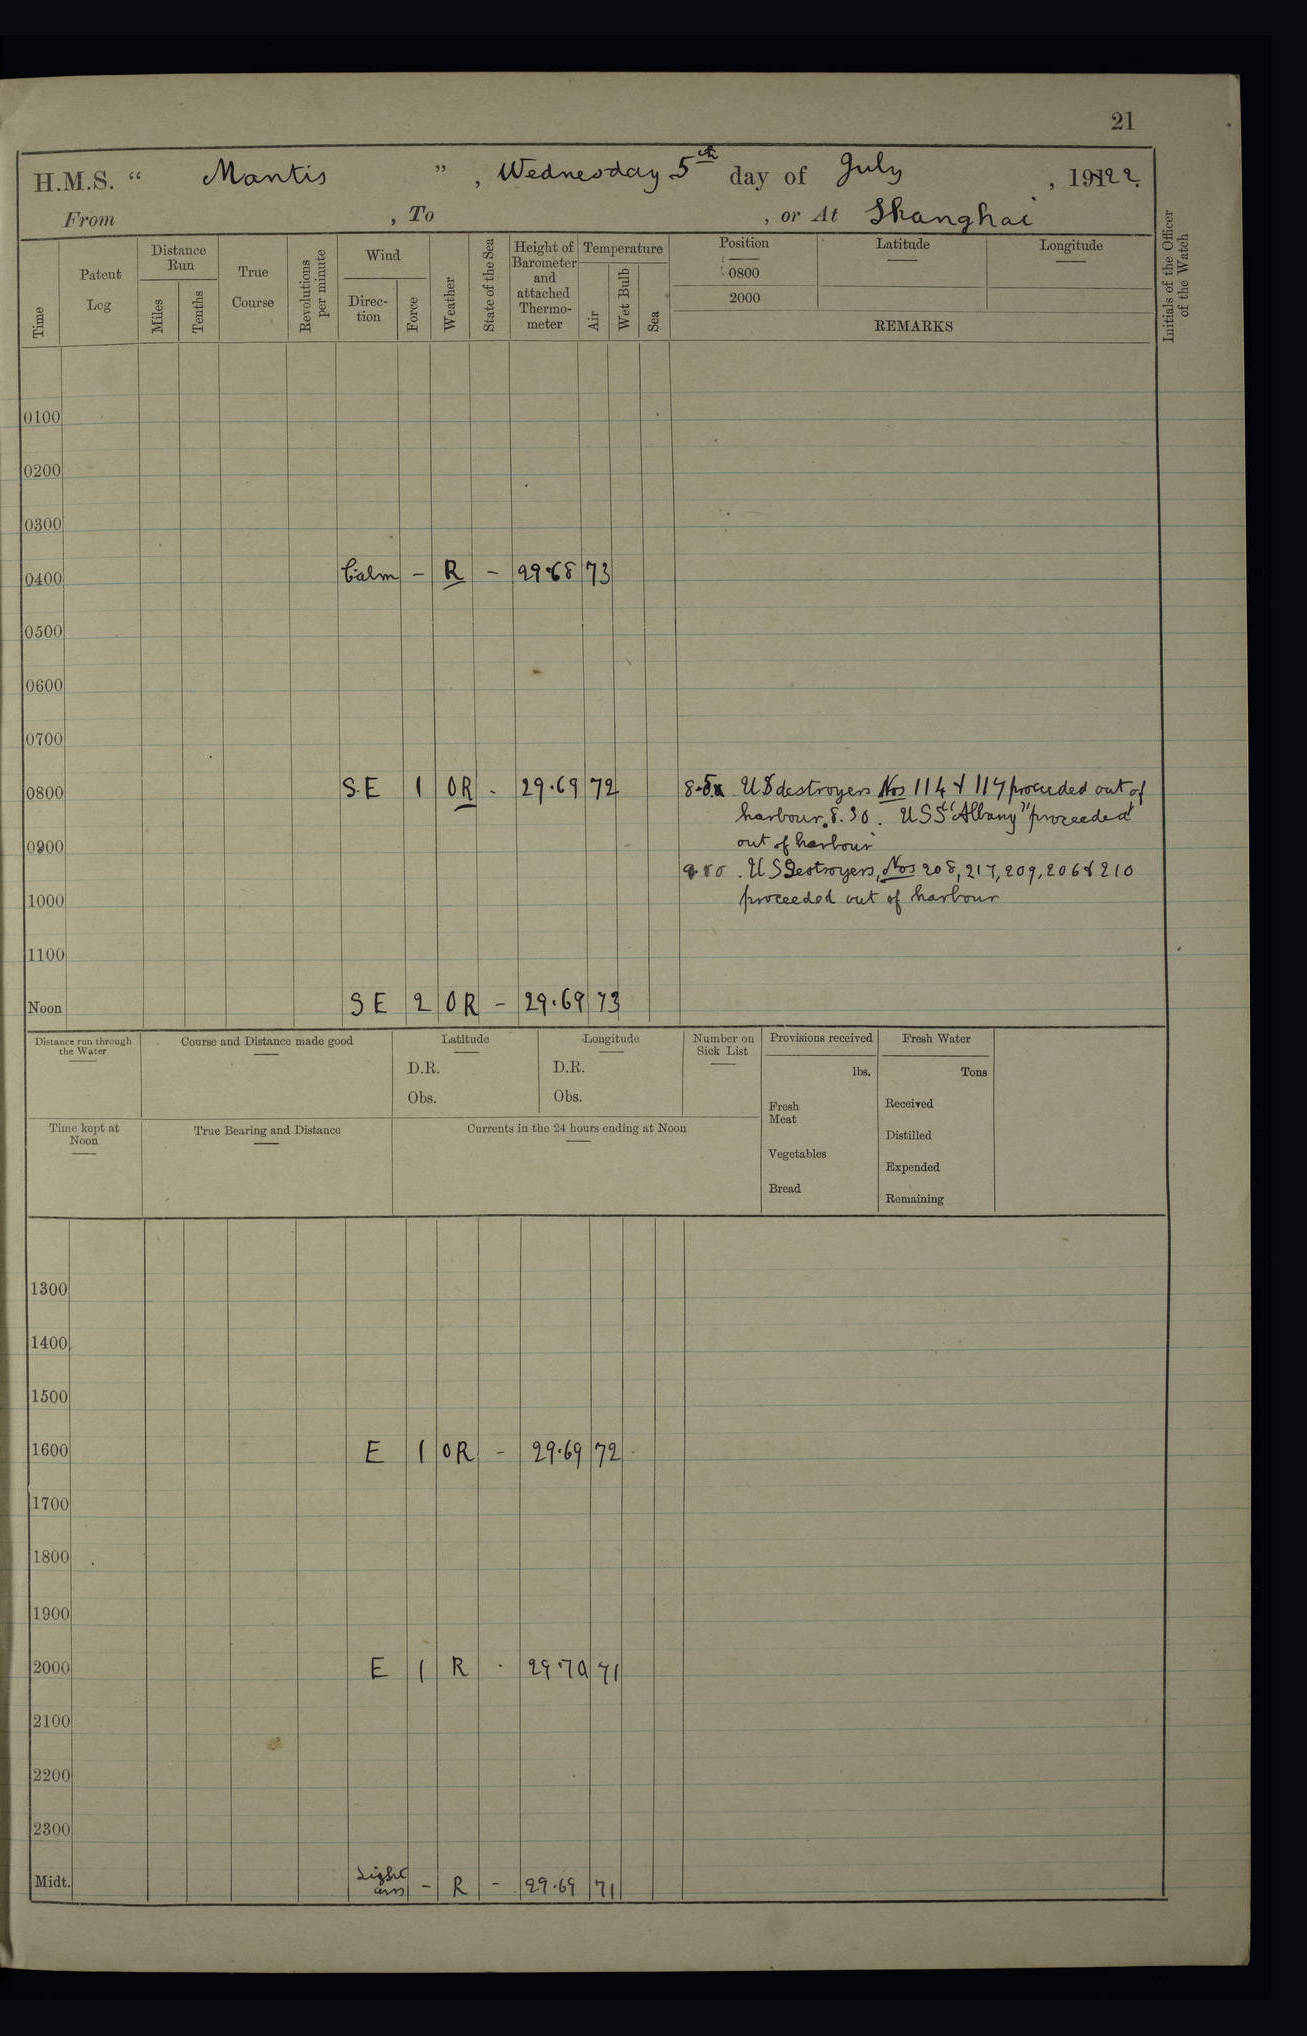 21
H.M.S. “ Mantis ” , Wednesday 5th day of July , 1922.
From , To , or At Shanghai
Time
Patent Log
Distance Run
Miles
Tenths
True Course
Revolutions per minute
Wind
Direc-tion
Force
Weather
State of the Sea
Height of Barometer and attached Thermo-meter
Temperature
Air
Wet Bulb
Sea
Position
0800
2000
Latitude
Longitude
REMARKS
Initials of the Officer of the Watch
0100
0200
0300
0400 Calm - R - 29.68 73
0500
0600
0700
0800 S.E 1 OR - 29.69 72 U S destroyers Nos 114 & 117 proceeded out of
harbour. 8.30. USS "Albany" proceeded
out of harbour
0900 U S Destroyers, Nos 208, 217, 209, 206 & 210
1000 proceeded out of harbour
1100
Noon S E 2 OR - 29.69 73
Distance run through the Water
Course and Distance made good
Latitude
D.R.
Obs.
Longitude
D.R.
Obs.
Number on Sick List
Provisions received
lbs.
Fresh Meat
Vegetables
Bread
Fresh Water
Tons
Received
Distilled
Expended
Remaining
Time kept at Noon
True Bearing and Distance
Currents in the 24 hours ending at Noon
1300
1400
1500
1600 E 1 OR - 29.69 72
1700
1800
1900
2000 E 1 R . 29.70 71
2100
2200
2300
Midt. Light airs - R - 29.69 71